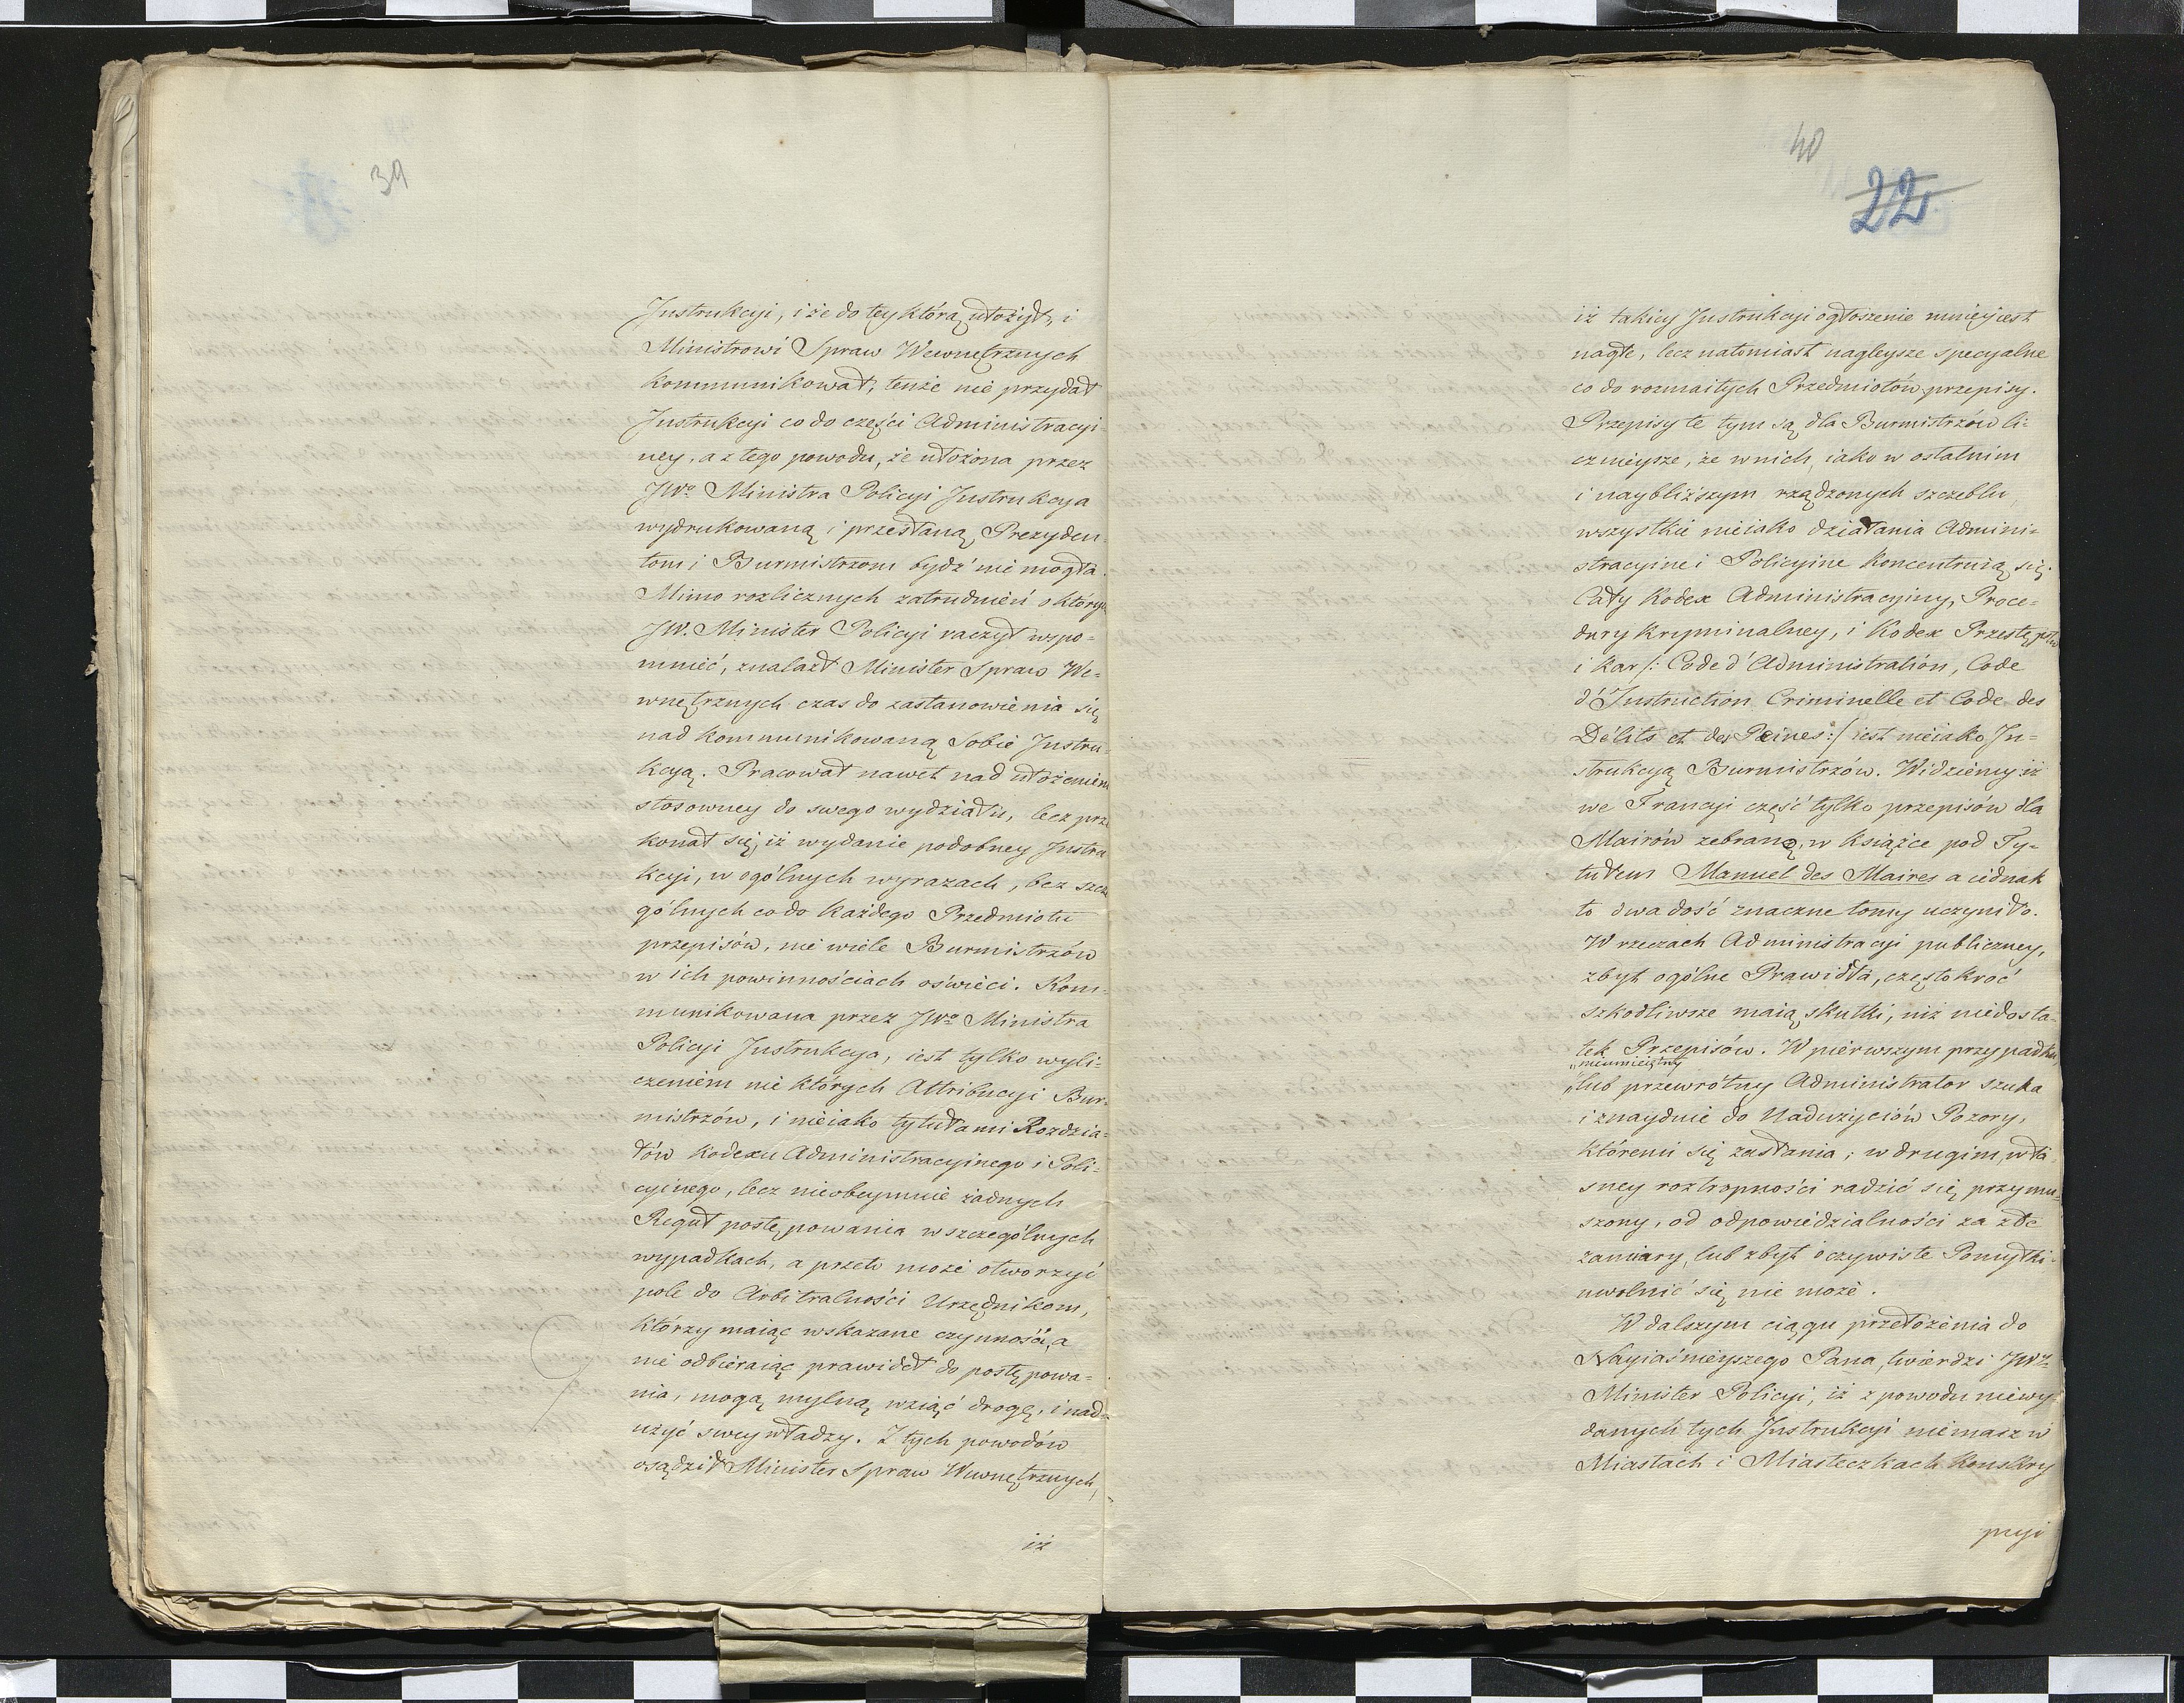 39
Instrukcyi, i że do tey którą ułożył, i
Ministrowi Spraw Wewnętrznych
kommunikował, tenże nie przydał
Instrukcyi co do części Administracyi-
ney, a z tego powodu, że ułożona przez
JWo Ministra Policyi Instrukcya
wydrukowaną i przesłaną Prezyden-
tom i Burmistrzom bydź nie mogła.
Mimo rozlicznych zatrudnień o których
JW. Minister Policyi raczył wspo=
mnieć, znalazł Minister Spraw We=
wnętrznych czas do zastanowienia się
nad kommunikowaną Sobie Instru-
kcyą. Pracował nawet nad ułożeniem
stosowney do swego wydziału, lecz prze
konał się, iż wydanie podobney Instru
kcyi, w ogólnych wyrazach, bez szcze
gólnych co do każdego Przedmiotu
przepisów, nie wiele Burmistrzów
w ich powinnościach oświeci. Kom-
munikowana przez JWo Ministra
Policyi Instrukcya, iest tylko wyli=
czeniem nie których Attribucyi Bur-
mistrzów, i nieiako tytułami Rozdzia=
łów Kodexu Administracyinego i Poli=
cyinego, lecz nieobeymuie żadnych
Reguł postępowania w szczególnych
wypadkach, a przeto może otworzyć
pole do Arbitralności Urzędnikom,
którzy maiąc wskazane czynności, a
nie odbieraiąc prawideł do postępowa=
nia, mogą mylną wziąć drogę, i nad=
użyć swey władzy. Z tych powodów
osądził Minister Spraw Wewnętrznych,
iż
40
22
iż takiey Instrukcyi ogłoszenie mniey iest
nagłe, lecz natomiast nagleysze specyalne
co do rozmaitych Przedmiotów przepisy.
Przepisy te tym są dla Burmistrzów li=
cznieysze, że w nich, iako w ostatnim
i naybliższym rządzonych szczeblu,
wszystkie nieiako działania Admini=
stracyine i Policyine koncentruią się.
Cały Kodex Administracyiny, Proce=
dury kryminalney, i Kodex Przestępstw
i kar /: Code d'Administration, Code
d'Instruction Criminelle et Code des
Délits et des Peines :/ iest nieiako In=
strukcyą Burmistrzów. Widziemy iż
we Francyi część tylko przepisów dla
Mairów zebraną w książce pod Ty=
tułem Manuel des Maires a iednak
to dwa dość znaczne tomy uczyniło.
W rzeczach Administracyi publiczney,
zbyt ogólne Prawidła, częstokroć
szkodliwsze maią skutki, niż niedosta=
tek Przepisów. W pierwszym przypadku,
„nieumieiętny
„lub przewrótny Administrator szuka
i znayduie do Nadużyciów Pozory,
któremi się zasłania; w drugim, wła
sney roztropności radzić się przymu=
szony, od odpowiedzialności za złe
zamiary, lub zbyt oczywiste Pomyłki
uwolnić się nie może.
W dalszym ciągu przełożenia do
Nayiaśnieyszego Pana, twierdzi JWy
Minister Policyi, iż z powodu niewy=
danych tych Instrukcyi niemasz w
Miastach i Miasteczkach Konskry
pcyi